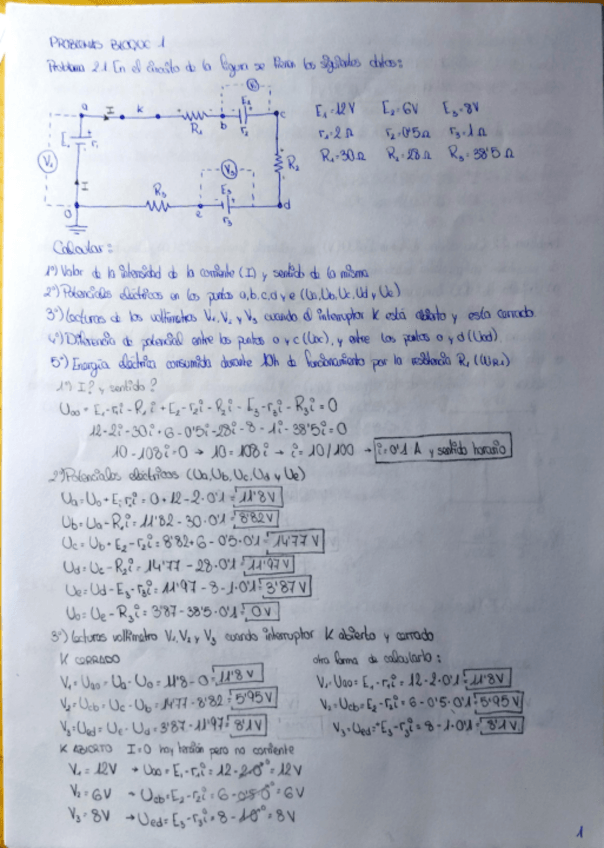 PROBLEMAS BLOQUE 1
Problema 2.1 En el circuito de la figura se tienen los siguientes datos:
a I k R₁ b E₂ r₂ c
V₂
E₁ r₁
V₁
R₂
R₃ e E₃ r₃ d
V₃
I
0
E₁=12V E₂=6V E₃=8V
r₁=2Ω r₂=0'5Ω r₃=1Ω
R₁=30Ω R₂=28Ω R₃=38'5Ω
Calcular:
1º) Valor de la intensidad de la corriente (I) y sentido de la misma
2º) Potenciales eléctricos en los puntos a, b, c, d y e (Ua, Ub, Uc, Ud y Ue)
3º) Lecturas de los voltímetros V₁, V₂ y V₃ cuando el interruptor K está abierto y está cerrado.
4º) Diferencia de potencial entre los puntos o y c (Uoc), y entre los puntos o y d (Uod)
5º) Energía eléctrica consumida durante 10h de funcionamiento por la resistencia R₁ (WR₁)
1º) I? y sentido?
U₀₀ = E₁-r₁i-R₁i+E₂-r₂i-R₂i-E₃-r₃i-R₃i=0
12-2i-30i+6-0'5i-28i-8-1i-38'5i=0
10-100i=0 → 10=100i → i=10/100 → i=0'1 A y sentido horario
2º) Potenciales eléctricos (Ua, Ub, Uc, Ud y Ue)
Ua=Uo+E₁-r₁i=0+12-2·0'1=11'8V
Ub=Ua-R₁i=11'82-30·0'1=8'82V
Uc=Ub+E₂-r₂i=8'82+6-0'5·0'1=14'77V
Ud=Uc-R₂i=14'77-28·0'1=11'97V
Ue=Ud-E₃-r₃i=11'97-8-1·0'1=3'87V
Uo=Ue-R₃i=3'87-38'5·0'1=0V
3º) Lecturas voltímetro V₁, V₂ y V₃ cuando interruptor K abierto y cerrado
K CERRADO
V₁=Uao=Ua-Uo=11'8-0=11'8V
V₂=Ucb=Uc-Ub=14'77-8'82=5'95V
V₃=Ued=Ue-Ud=3'87-11'97=8'1V
otra forma de calcularlo:
V₁=Uao=E₁-r₁i=12-2·0'1=11'8V
V₂=Ucb=E₂-r₂i=6-0'5·0'1=5'95V
V₃=Ued=-E₃-r₃i=8-1·0'1=8'1V
K ABIERTO I=0 hay tensión pero no corriente
V₁=12V → Uao=E₁-r₁i=12-2·0=12V
V₂=6V → Ucb=E₂-r₂i=6-0'5·0=6V
V₃=8V → Ued=E₃-r₃i=8-1·0=8V
1